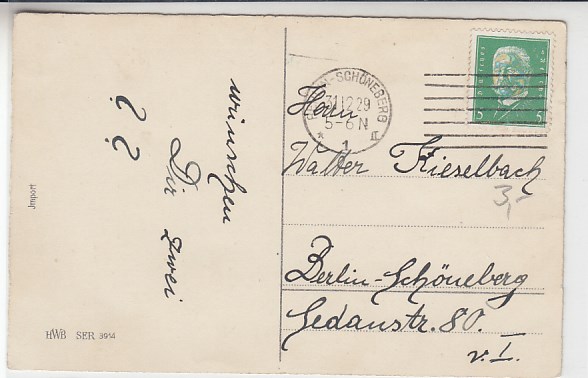 wünschen
Dir zwei
? ?
Import
HWB SER 3914
BERLIN-SCHÖNEBERG
31.12.29
5-6 N
* 1 II
5 5
Herrn
Walter Kieselbach
3,-
Berlin-Schöneberg
Sedanstr. 80.
v. I.